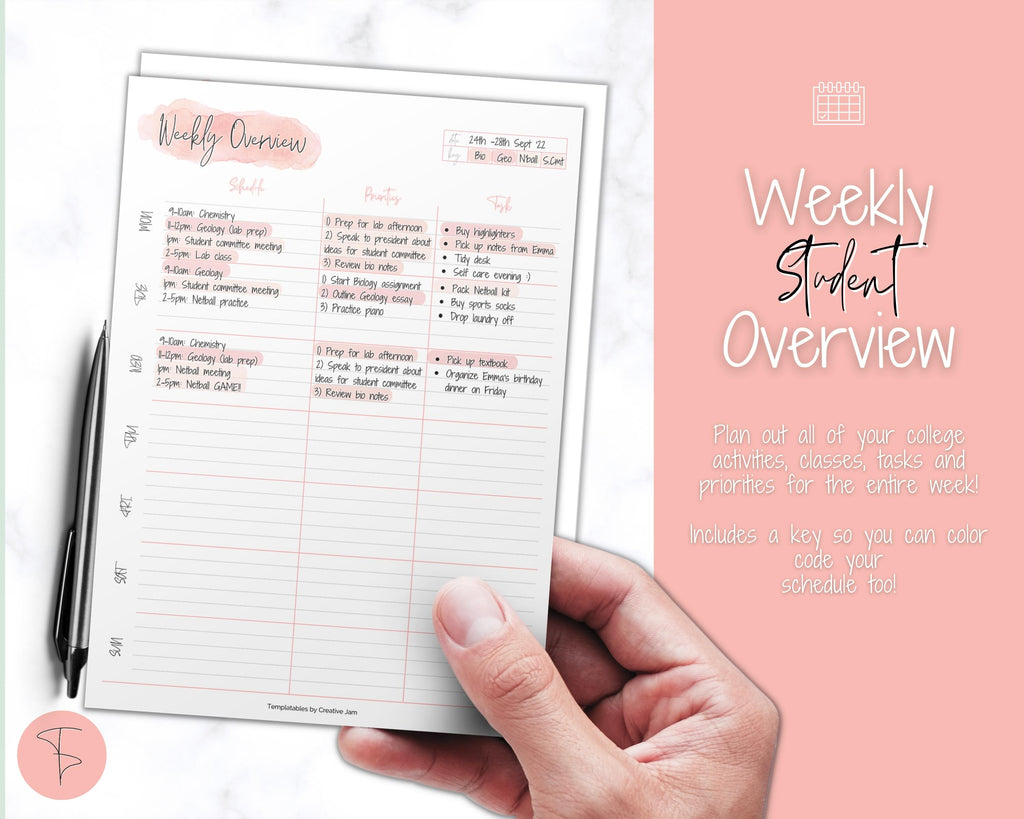 Weekly Overview
date 24th -28th Sept '22
key Bio Geo N'ball S.Cmt
Schedule Priorities Task
MON
9-10am: Chemistry
11-12pm: Geology (lab prep)
1pm: Student committee meeting
2-5pm: Lab class
1) Prep for lab afternoon
2) Speak to president about
ideas for student committee
3) Review bio notes
• Buy highlighters
• Pick up notes from Emma
• Tidy desk
• Self care evening :)
TUE
9-10am: Geology
1pm: Student committee meeting
2-5pm: Netball practice
1) Start Biology assignment
2) Outline Geology essay
3) Practice piano
• Pack Netball kit
• Buy sports socks
• Drop laundry off
WED
9-10am: Chemistry
11-12pm: Geology (lab prep)
1pm: Netball meeting
2-5pm: Netball GAME!!
1) Prep for lab afternoon
2) Speak to president about
ideas for student committee
3) Review bio notes
• Pick up textbook
• Organize Emma's birthday
dinner on Friday
THU
FRI
SAT
SUN
Templatables by Creative Jam
Weekly
Student
Overview
Plan out all of your college
activities, classes, tasks and
priorities for the entire week!
Includes a key so you can color
code your
schedule too!